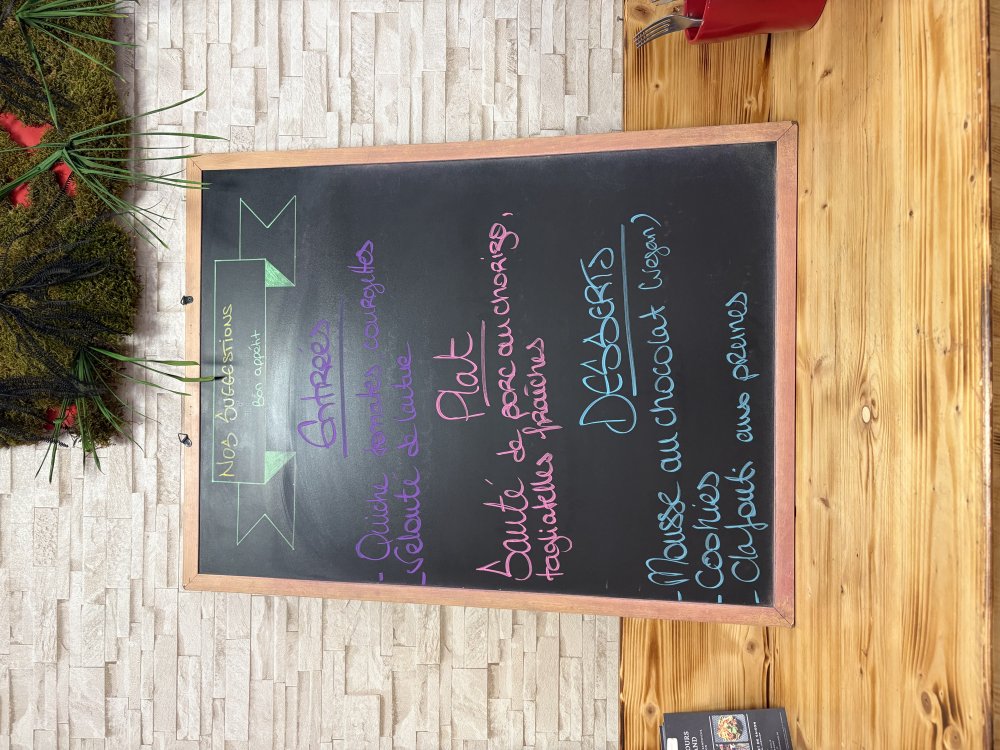 Nos Suggestions
Bon appétit
Entrées
- Quiche tomates courgettes
- Velouté de laitue
Plat
Sauté de porc au chorizo,
tagliatelles fraîches
DESSERTS
- Mousse au chocolat (vegan)
- Cookies
- Clafouti aux prunes